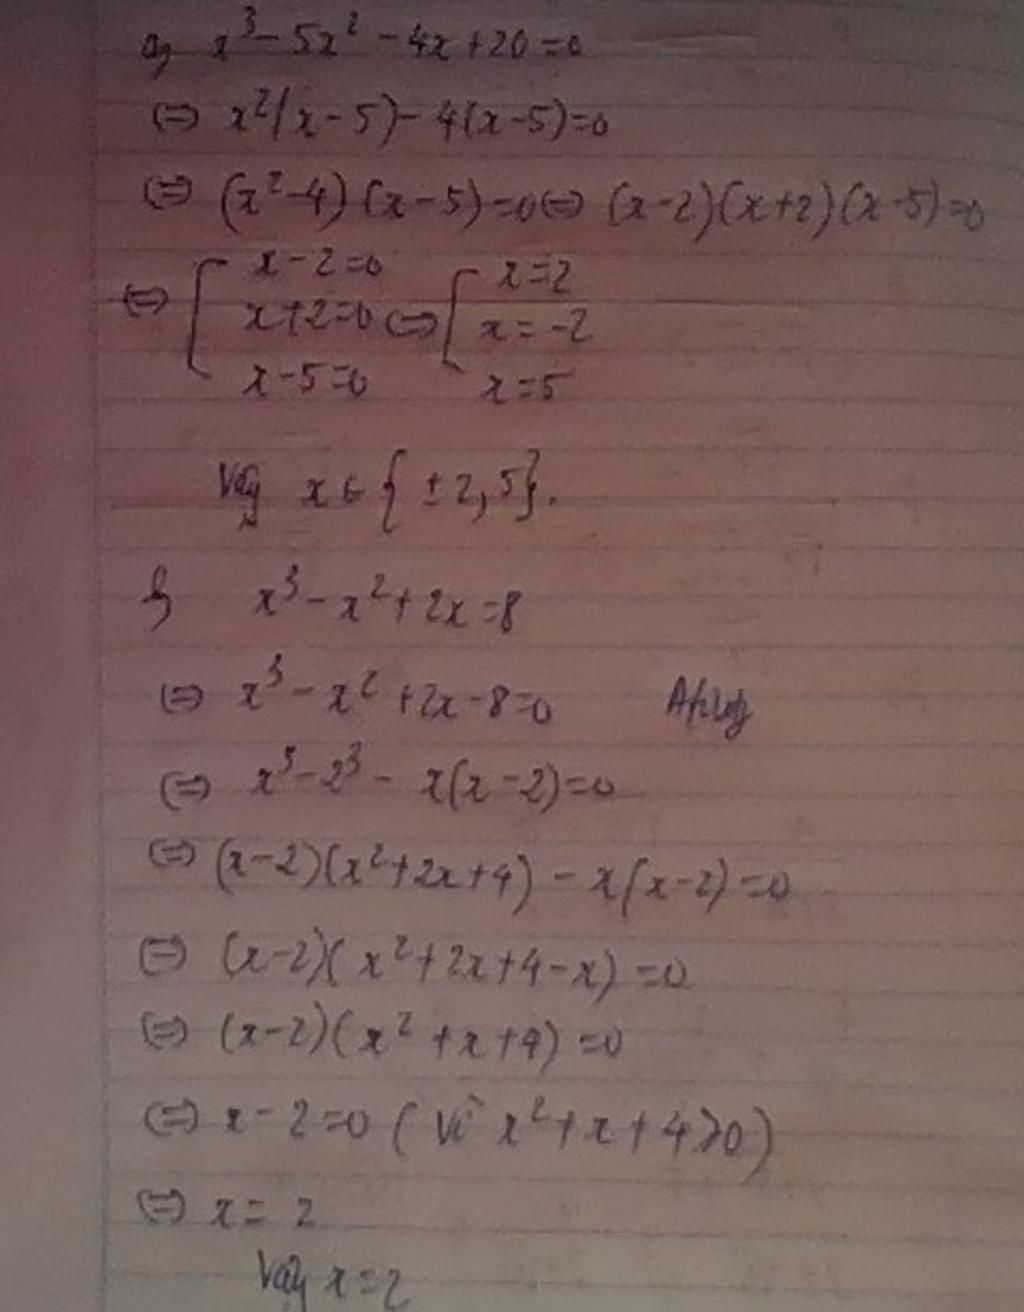 a, x³ - 5x² - 4x + 20 = 0
⇔ x²(x - 5) - 4(x - 5) = 0
⇔ (x² - 4)(x - 5) = 0 ⇔ (x - 2)(x + 2)(x - 5) = 0
⇔ [ x - 2 = 0 [ x = 2
x + 2 = 0 ⇔ x = -2
x - 5 = 0 x = 5
Vậy x ∈ { ± 2, 5 }.
b, x³ - x² + 2x = 8
⇔ x³ - x² + 2x - 8 = 0
⇔ x³ - 2³ - x(x - 2) = 0
⇔ (x - 2)(x² + 2x + 4) - x(x - 2) = 0
⇔ (x - 2)(x² + 2x + 4 - x) = 0
⇔ (x - 2)(x² + x + 4) = 0
⇔ x - 2 = 0 ( Vì x² + x + 4 > 0 )
⇔ x = 2
Vậy x = 2